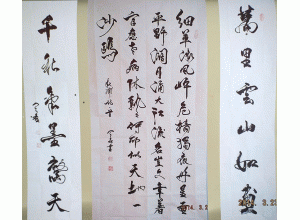 萬里雲山如畫
細草微風岸危檣獨夜舟星垂
平野闊月涌大江流名豈文章著
官應老病休飄飄何所似天地一
沙鷗
千秋筆墨驚天